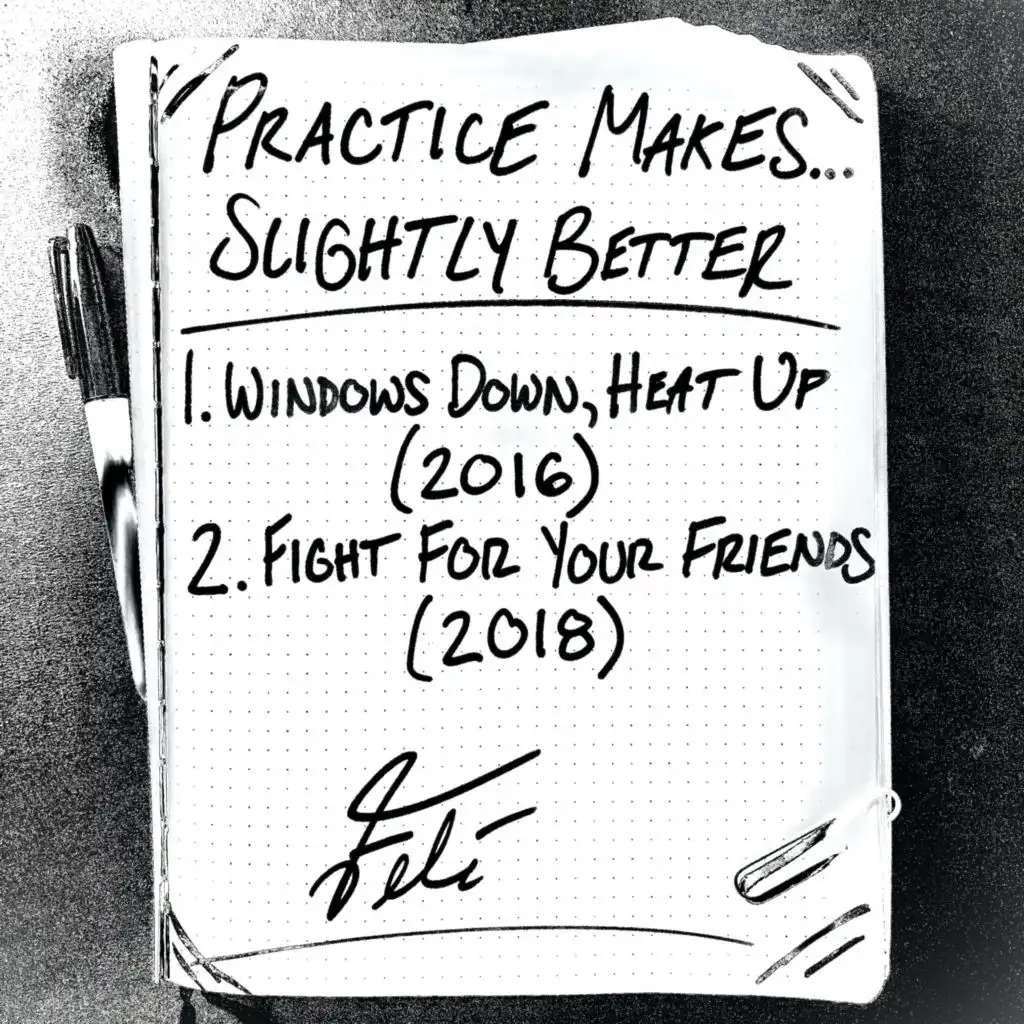 PRACTICE MAKES...
SLIGHTLY BETTER
1. WINDOWS DOWN, HEAT UP
(2016)
2. FIGHT FOR YOUR FRIENDS
(2018)
Feli